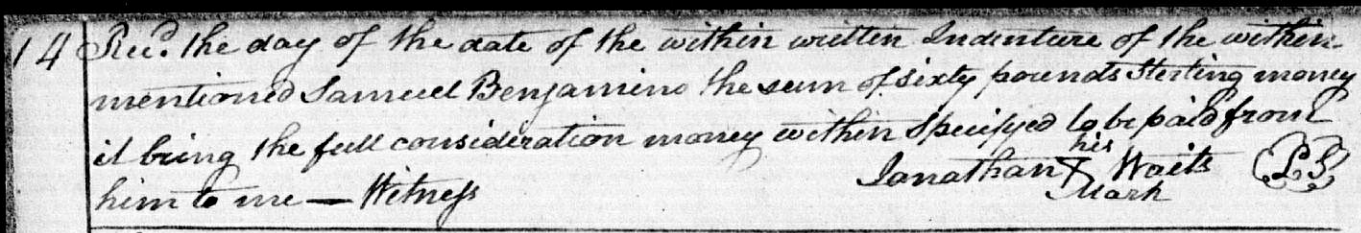 14 Rec.d the day of the date of the within written Indenture of the within
mentioned Samuel Benjamins the sum of sixty pounds Sterling money
it being the full consideration money within Specifyed to be paid from
his
him to me — Witness Jonathan X Waits LS
Mark